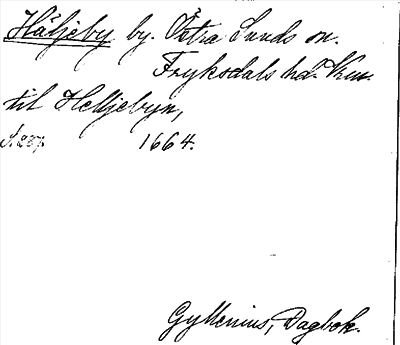 Häljeby by. Östra Sunds sn.
Fryksdals hd. Kem.
til Helljebyn,
S. 237. 1664.
Gyllenius, Dagbok.